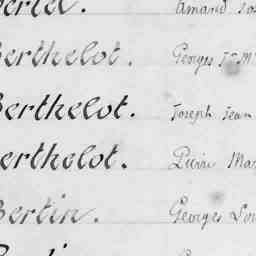 Bertel. Amand
Berthelot. Georges
Berthelot. Joseph Jean
Berthelot. Pierre
Bertin. Georges